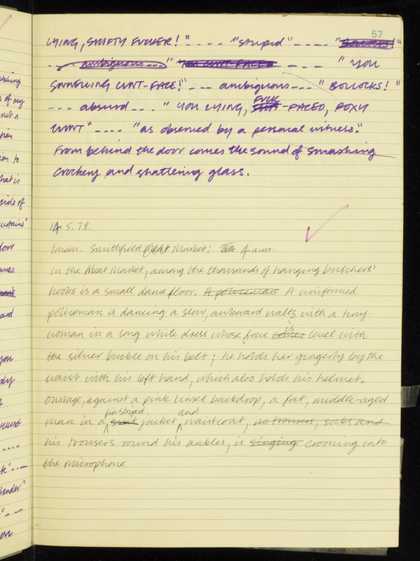 57
LYING, SHIFTY FUCKER!" ---- "stupid" ---- "
ambiguous ---" ---- "YOU
SNIVELLING CUNT-FACE!" --- ambiguous --- "BOLLOCKS!"
--- absurd --- "YOU LYING, FUCK-FACED, POXY
CUNT" ---- "as observed by a personal witness."
From behind the door comes the sound of smashing
crockery and shattering glass.
5.78.
Smithfield Meat Market: 4 a.m.
In the Meat Market, among the thousands of hanging butchers'
hooks is a small dance floor. A policeman A uniformed
policeman is dancing a slow, awkward waltz with a tiny
woman in a long white dress whose face is level with
the silver buckle on his belt; he holds her gingerly by the
waist with his left hand, which also holds his helmet.
Onstage, against a pink tinsel backdrop, a fat, middle-aged
man in a jacket and waistcoat, no trousers, socks and
his trousers round his ankles, is singing crooning into
the microphone